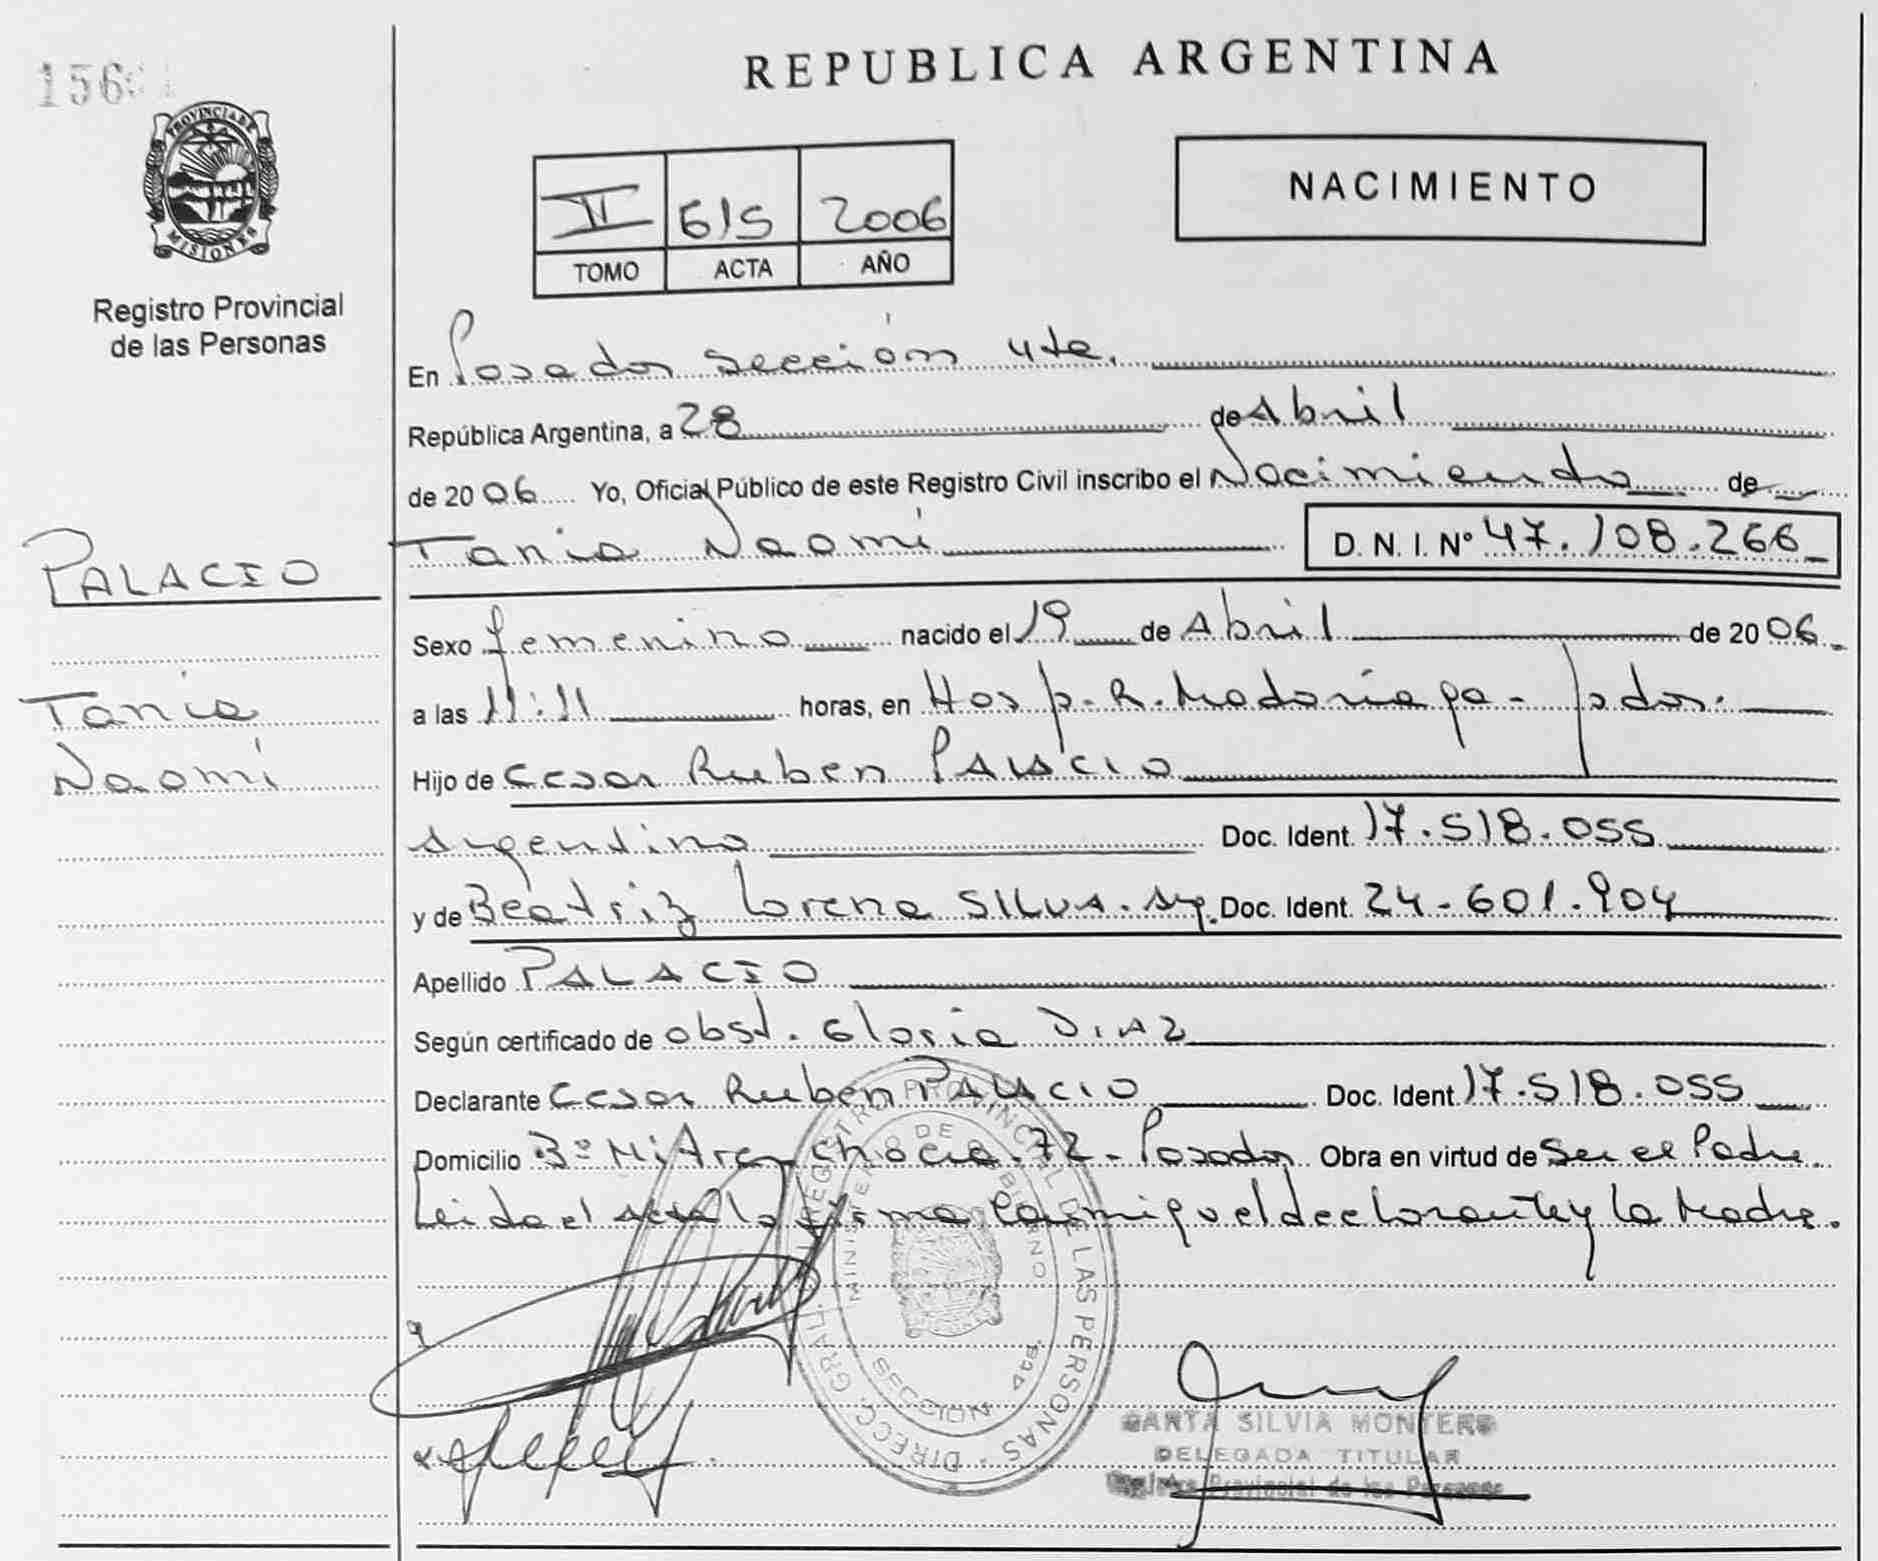 REPUBLICA ARGENTINA
PROVINCIA DE
MISIONES
Registro Provincial
de las Personas
NACIMIENTO
II 615 2006
TOMO ACTA AÑO
En Posadas sección 4ta.
República Argentina, a 28 de Abril
de 2006 Yo, Oficial Público de este Registro Civil inscribo el Nacimiento de
Tania Naomí D. N. I. Nº 47.108.266
PALACIO
Tania
Naomí
Sexo femenino nacido el 19 de Abril de 2006
a las 11:11 horas, en Hosp. R. Madariaga - Psdas.
Hijo de Cesar Ruben PALACIO
Argentino Doc. Ident. 17.518.055
y de Beatriz Lorena SILVA. Arg. Doc. Ident. 24.601.904
Apellido PALACIO
Según certificado de obst. Gloria DIAZ
Declarante Cesar Ruben PALACIO Doc. Ident 17.518.055
Domicilio Bº Mitre chacra 72 - Posadas Obra en virtud de Ser el Padre.
Leida el acta la firma conmigo el declarante y la Madre.
DIRECC. GRAL. REGISTRO PROVINCIAL DE LAS PERSONAS
MINISTERIO DE GOBIERNO
SECCION 4ta.
SILVIA MONTERO
DELEGADA TITULAR
Registro Provincial de las Personas